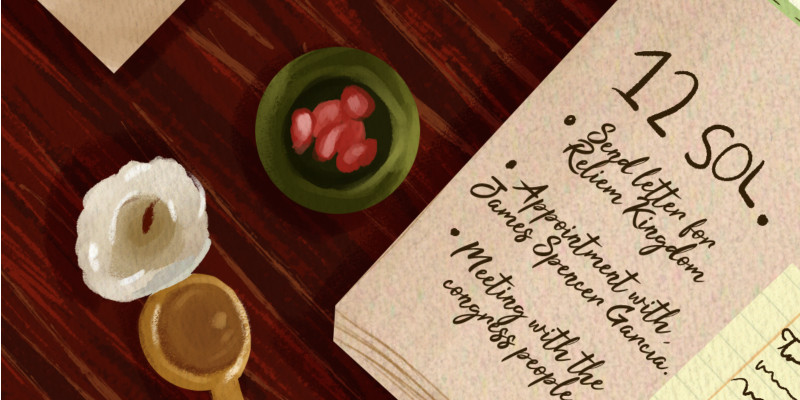 12 SOL.
• Send letter for
Reliem Kingdom
• Appointment with
James Spencer García.
• Meeting with the
congress people